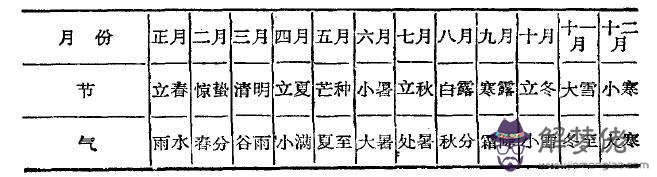 月份 正月 二月 三月 四月 五月 六月 七月 八月 九月 十月 十一月 十二月
节 立春 惊蛰 清明 立夏 芒种 小暑 立秋 白露 寒露 立冬 大雪 小寒
气 雨水 春分 谷雨 小满 夏至 大暑 处暑 秋分 霜降 小雪 冬至 大寒
解梦佬